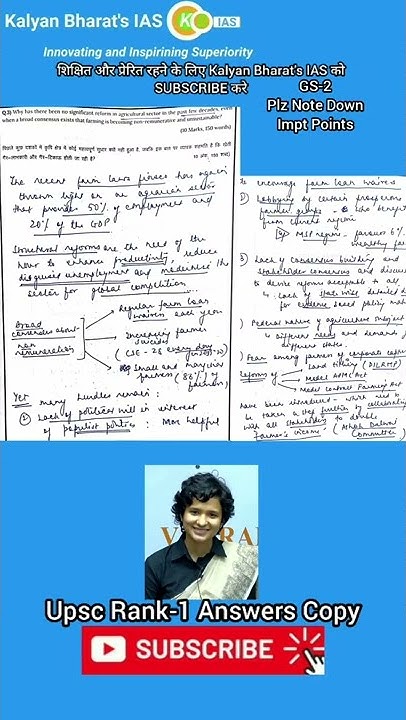 Kalyan Bharat's IAS
K
IAS
Innovating and Inspirining Superiority
शिक्षित और प्रेरित रहने के लिए Kalyan Bharat's IAS को
SUBSCRIBE करे
GS-2
Plz Note Down
Impt Points
Q.3) Why has there been no significant reform in agricultural sector in the past few decades, even
when a broad consensus exists that farming is becoming non-remunerative and unsustainable?
(10 Marks, 150 words)
पिछले कुछ दशकों में कृषि क्षेत्र में कोई महत्वपूर्ण सुधार क्यों नहीं हुआ है, जबकि इस बात पर व्यापक सहमति है कि खेती
गैर-लाभकारी और गैर-टिकाऊ होती जा रही है?
10 अंक, 150 शब्द)
The recent farm laws fiasco has again
thrown light on an agrarian sector
that provides 50% of employment and
20% of the GDP
Structural reforms are the need of the
hour to enhance productivity, reduce
disguised unemployment and modernise the
sector for global competition...
Broad
consensus about
non
remuneration
Regular farm loan
waivers each year
Increasing farmer
suicides
(CSE - 28 every day
Small and marginal
farmers (86% of
farmers)
Yet many hurdles remain:
Lack of political will in interest
of populist politics : More helpful
to encourage farm loan waivers
2) Lobbying by certain prosperous
farmer groups - who benefit
from current regime
MSP regime - favours 6%
wealthy
3) Lack of consensus building and
stakeholder consensus and
to devise reforms acceptable to all
Lack of statewise detailed
for evidence based policy making
Federal nature of agriculture subject
different needs and demands of
different states.
Fear among farmers of corporate
reforms of
land titling (DILRMP)
Model APMC Act
Model Contract Farming Act
have been introduced - which need to
be taken a step further by
with all stakeholders to double
farmer's income. (Ashok Dalwai
Committee)
Upsc Rank-1 Answers Copy
SUBSCRIBE